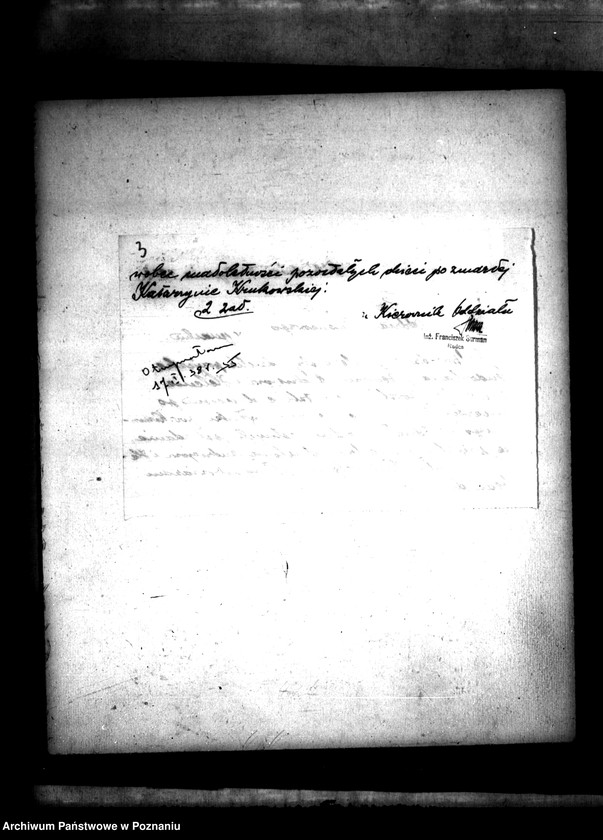 3
wobec małoletności pozostałych dzieci po zmarłej
Katarzynie Krukowskiej.
2 zał.
Kierownik Oddziału
Inż. Franciszek Surman
Radca
Otrzymałem
Archiwum Państwowe w Poznaniu